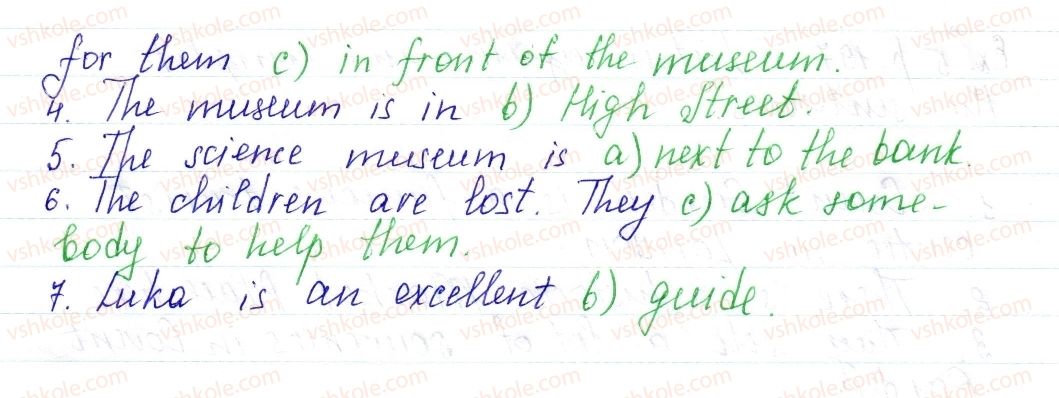 for them c) in front of the museum.
4. The museum is in b) High Street.
5. The science museum is a) next to the bank.
6. The children are lost. They c) ask some-
body to help them.
7. Luka is an excellent b) guide.